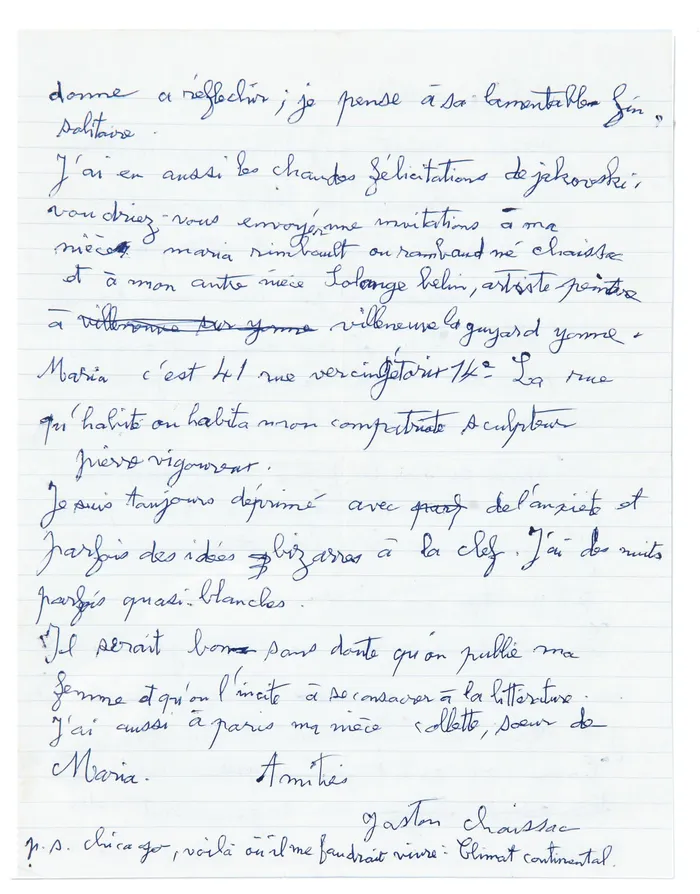 donne a réflechir ; je pense à sa lamentable fin
solitaire.
J'ai eu aussi les chaudes félicitations de jakovski,
voudriez-vous envoyer une invitations à ma
nièce maria rimbault ou rambaud né chaissac
et à mon autre nièce Solange belin, artiste peintre
à villeneuve sur yonne villeneuve la guyard yonne.
Maria c'est 41 rue vercingétorix 14e La rue
qu'habite ou habita mon compatriote sculpteur
pierre vigoureux.
Je suis toujours déprimé avec parf de l'anxieté et
parfois des idées bizarres à la clef. J'ai des nuits
parfois quasi-blanches.
Il serait bon sans doute qu'on publie ma
femme et qu'on l'incite à se consacrer à la littérature.
J'ai aussi à paris ma nièce collette, soeur de
Maria. Amitiés
gaston chaissac
p.s. chicago, voilà où il me faudrait vivre : Climat continental.